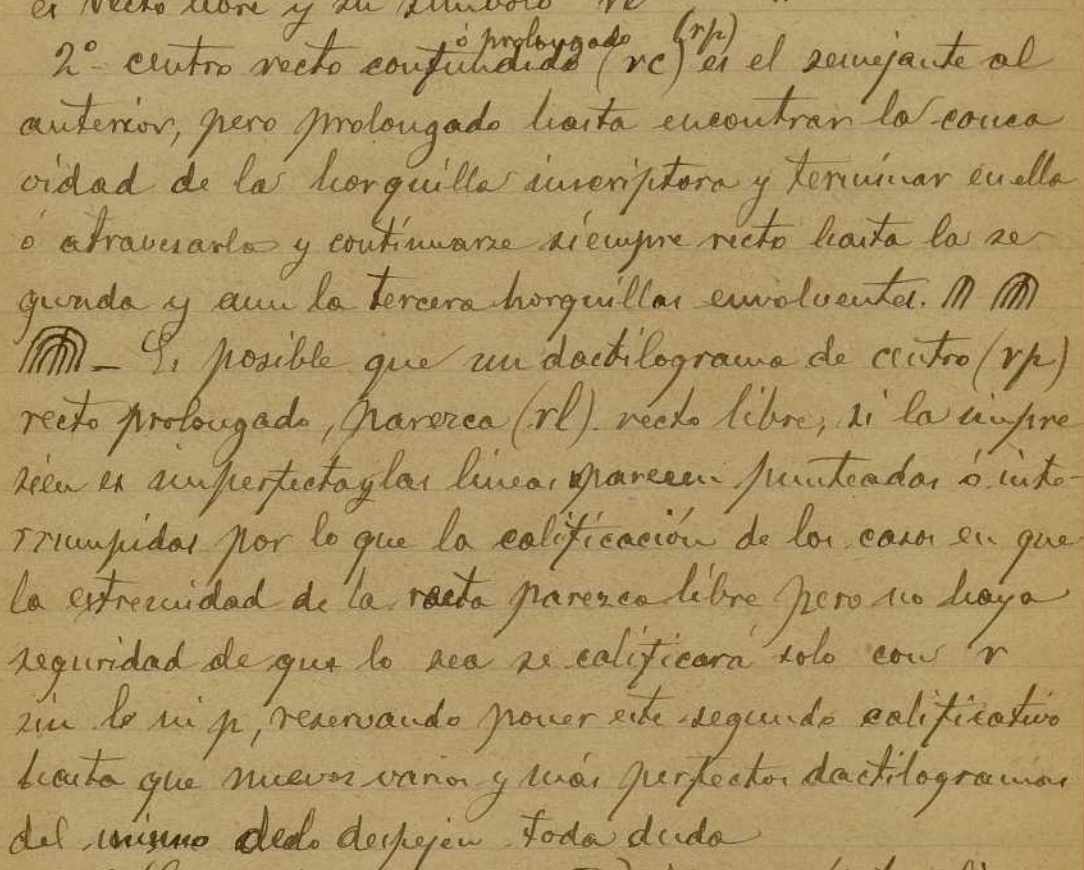 es recto libre y su símbolo rl
ó prolongado (rp)
2º centro recto confundido (rc) es el semejante al
anterior, pero prolongado hasta encontrar la conca
vidad de la horquilla inscriptora y terminar en ella
ó atravesarla y continuarse siempre recto hasta la se-
gunda y aun la tercera horquillas envolventes.
— Es posible que un dactilograma de centro (rp)
recto prolongado, parezca (rl) recto libre, si la impre
sión es imperfecta y las lineas parecen punteadas ó inte-
rrumpidas por lo que la calificación de los casos en que
la estremidad de la recta parezca libre pero no haya
seguridad de que lo sea se calificará solo con r
sin l ni p, reservando poner este segundo calificativo
hasta que nuevos varios y más perfectos dactilogramas
del mismo dedo despejen toda duda